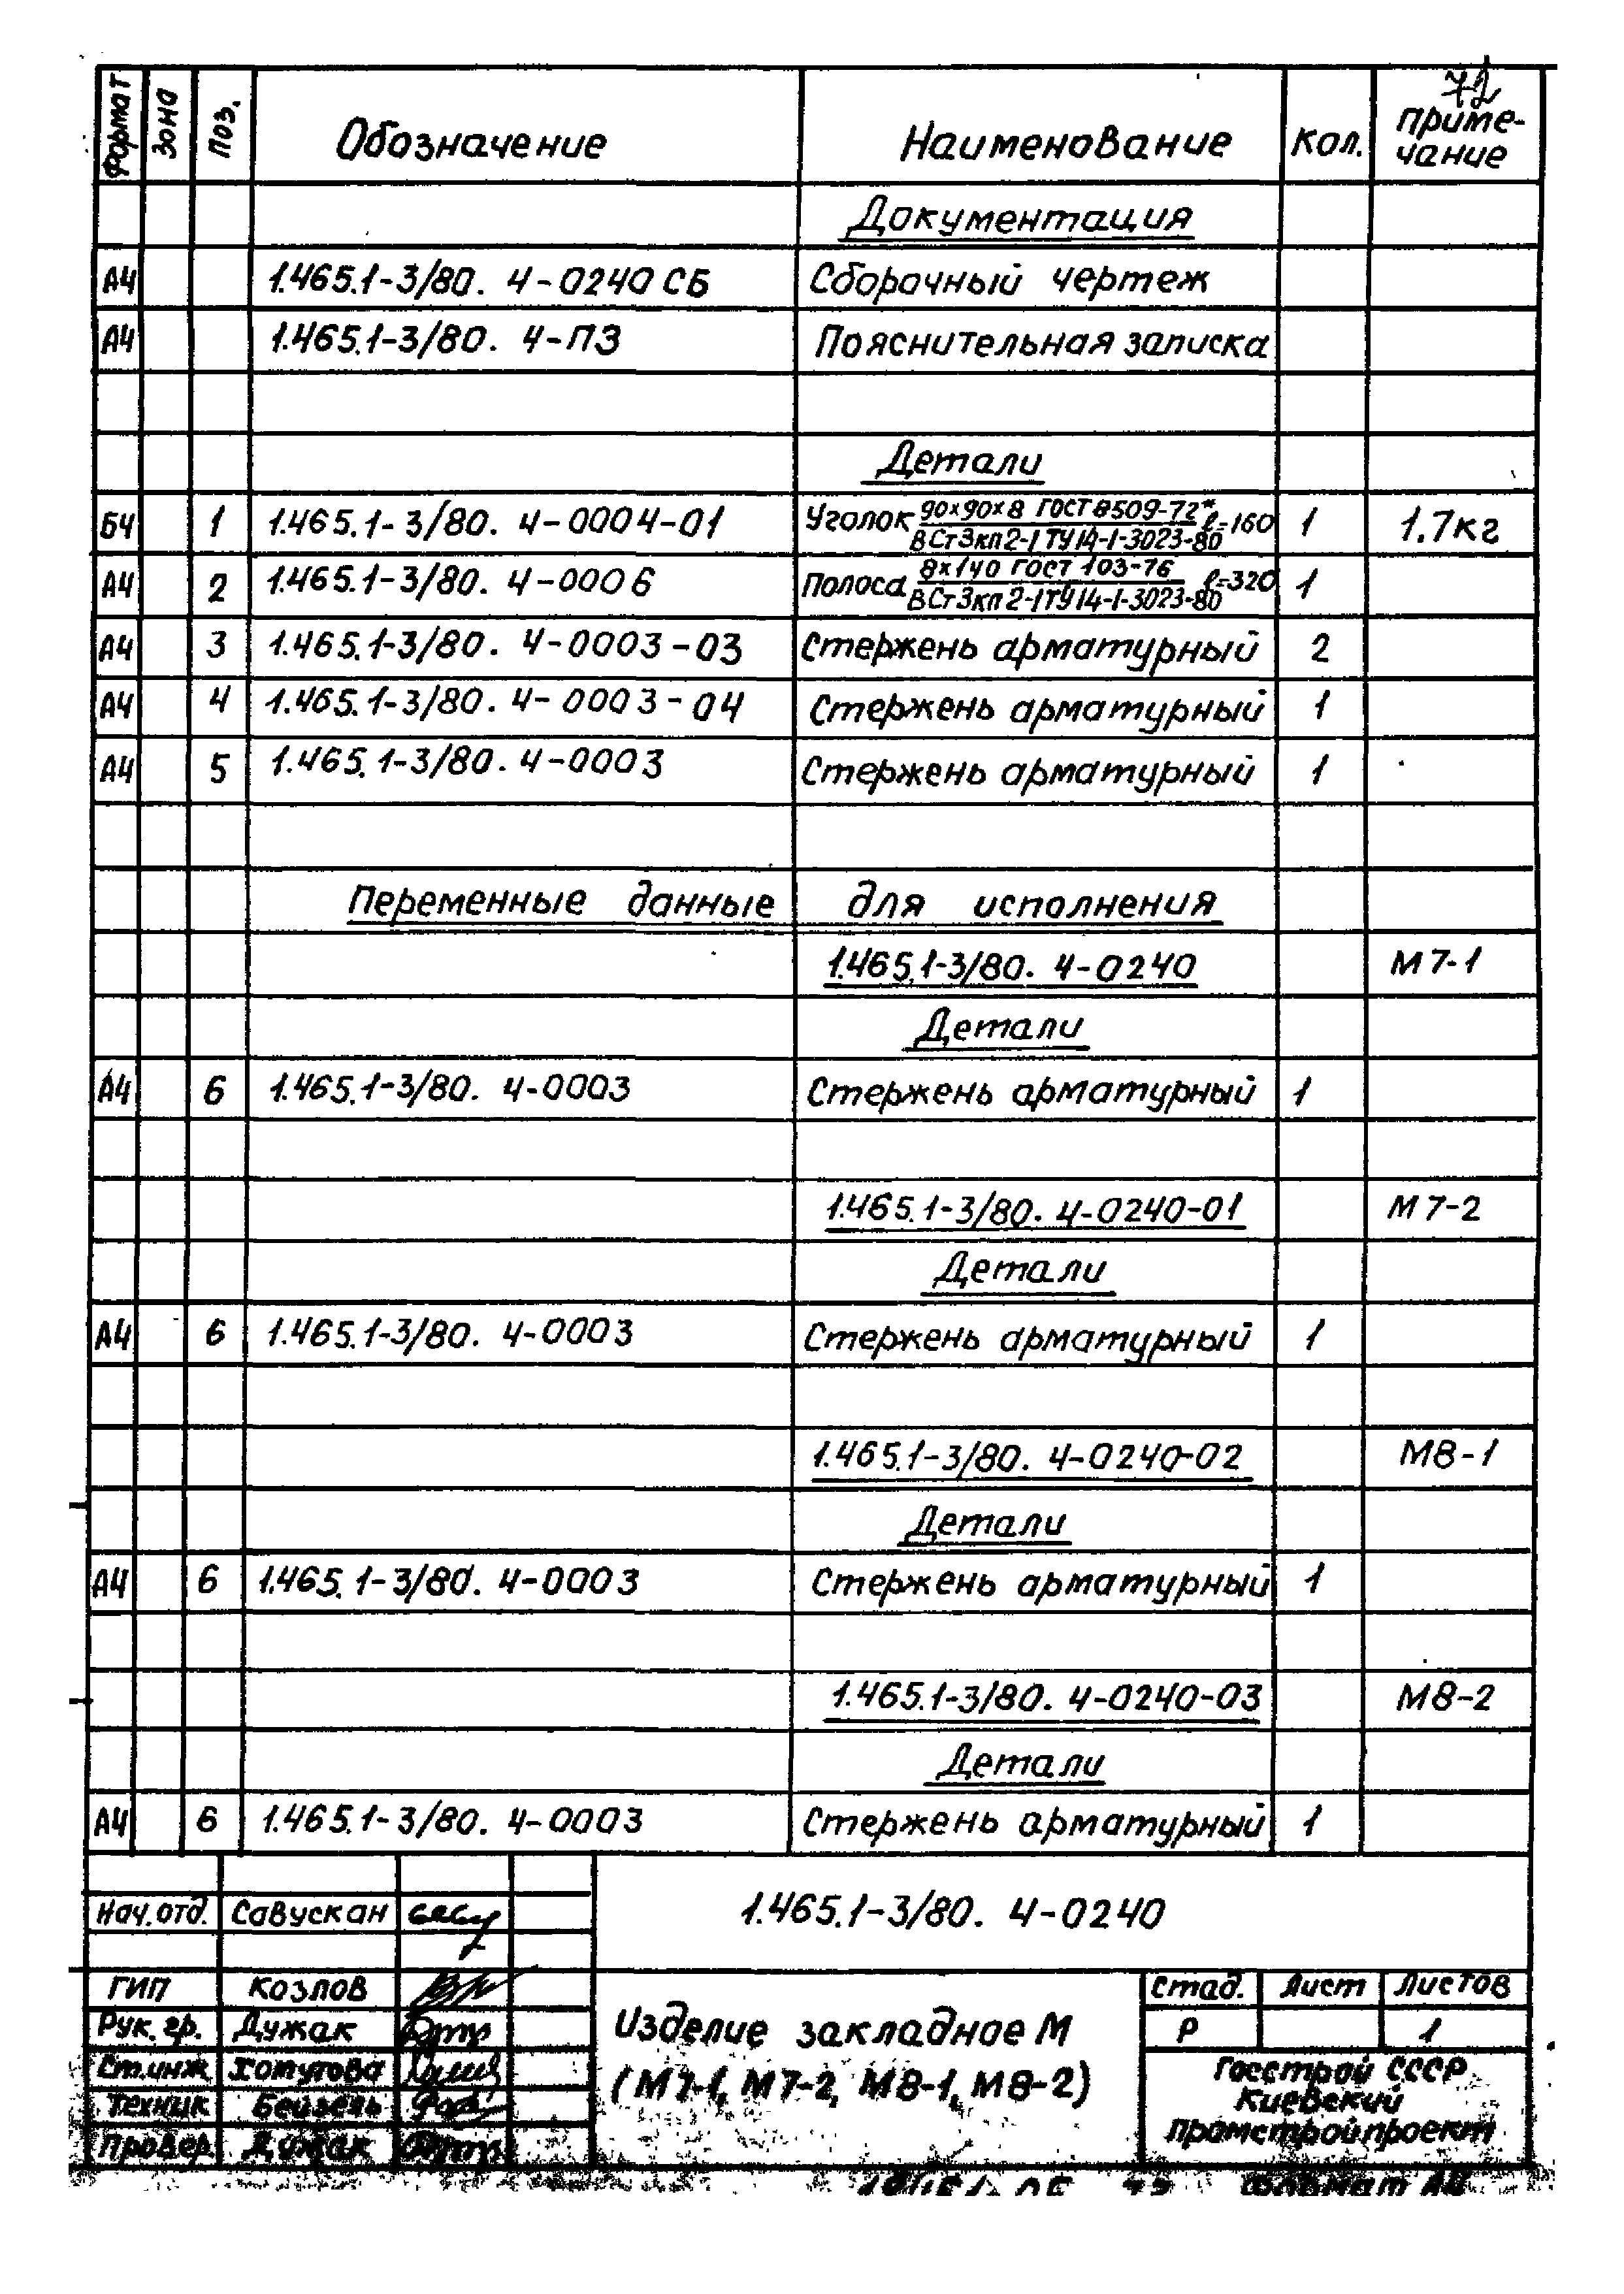 72
Формат Зона Поз. Обозначение Наименование Кол. Приме-
чание
Документация
А4 1.465.1-3/80. 4-0240 СБ Сборочный чертеж
А4 1.465.1-3/80. 4-ПЗ Пояснительная записка
Детали
Б4 1 1.465.1-3/80. 4-0004-01 Уголок 90×90×8 ГОСТ 8509-72* ℓ=160 1 1.7кг
ВСт3кп2-1 ТУ14-1-3023-80
А4 2 1.465.1-3/80. 4-0006 Полоса 8×140 ГОСТ 103-76 ℓ=320 1
ВСт3кп2-1 ТУ14-1-3023-80
А4 3 1.465.1-3/80. 4-0003-03 Стержень арматурный 2
А4 4 1.465.1-3/80. 4-0003-04 Стержень арматурный 1
А4 5 1.465.1-3/80. 4-0003 Стержень арматурный 1
Переменные данные для исполнения
1.465.1-3/80. 4-0240 М7-1
Детали
А4 6 1.465.1-3/80. 4-0003 Стержень арматурный 1
1.465.1-3/80. 4-0240-01 М7-2
Детали
А4 6 1.465.1-3/80. 4-0003 Стержень арматурный 1
1.465.1-3/80. 4-0240-02 М8-1
Детали
А4 6 1.465.1-3/80. 4-0003 Стержень арматурный 1
1.465.1-3/80. 4-0240-03 М8-2
Детали
А4 6 1.465.1-3/80. 4-0003 Стержень арматурный 1
Нач.отд. Савускан
1.465.1-3/80. 4-0240
ГИП Козлов
Рук.гр. Дужак
Ст.инж. Хотутова
Техник Бейзель
Провер. Дужак
Изделие закладное М
(М7-1, М7-2, М8-1, М8-2)
Стад. Лист Листов
Р 1
Госстрой СССР
Киевский
Промстройпроект
Формат А4